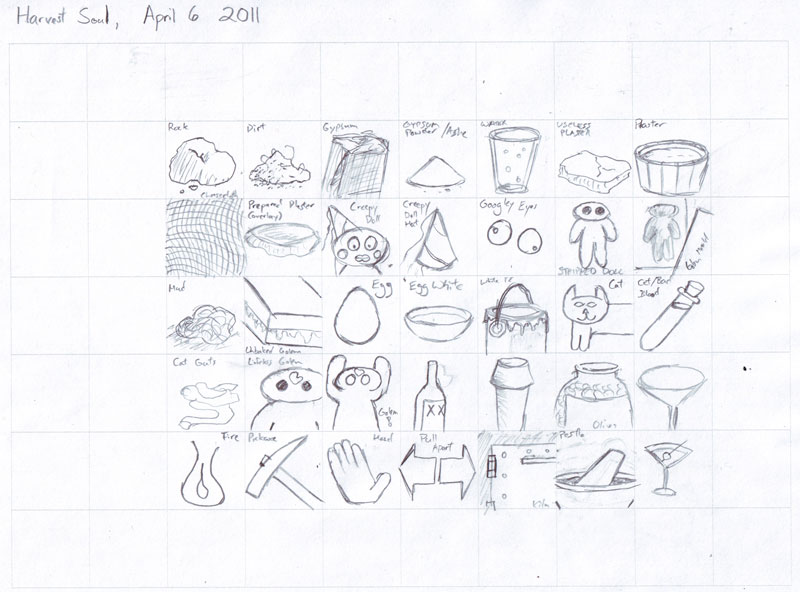 Harvest Soul, April 6 2011
Rock
Dirt
Gypsum
Gypsum
Powder / Ashe
Water
Useless
Plaster
Plaster
Prepared Plaster
(overlay)
Creepy
Doll
Creepy
Doll
Hat
Googley Eyes
Stripped Doll
Golem Mold
Mud
Unbaked Golem
Egg
Egg White
White
Cat
Cat/
Blood
Cat Guts
Lifeless Golem
Golem
XX
Olives
Fire
Pickaxe
Hand
Pull
Apart
Kiln
Pestle